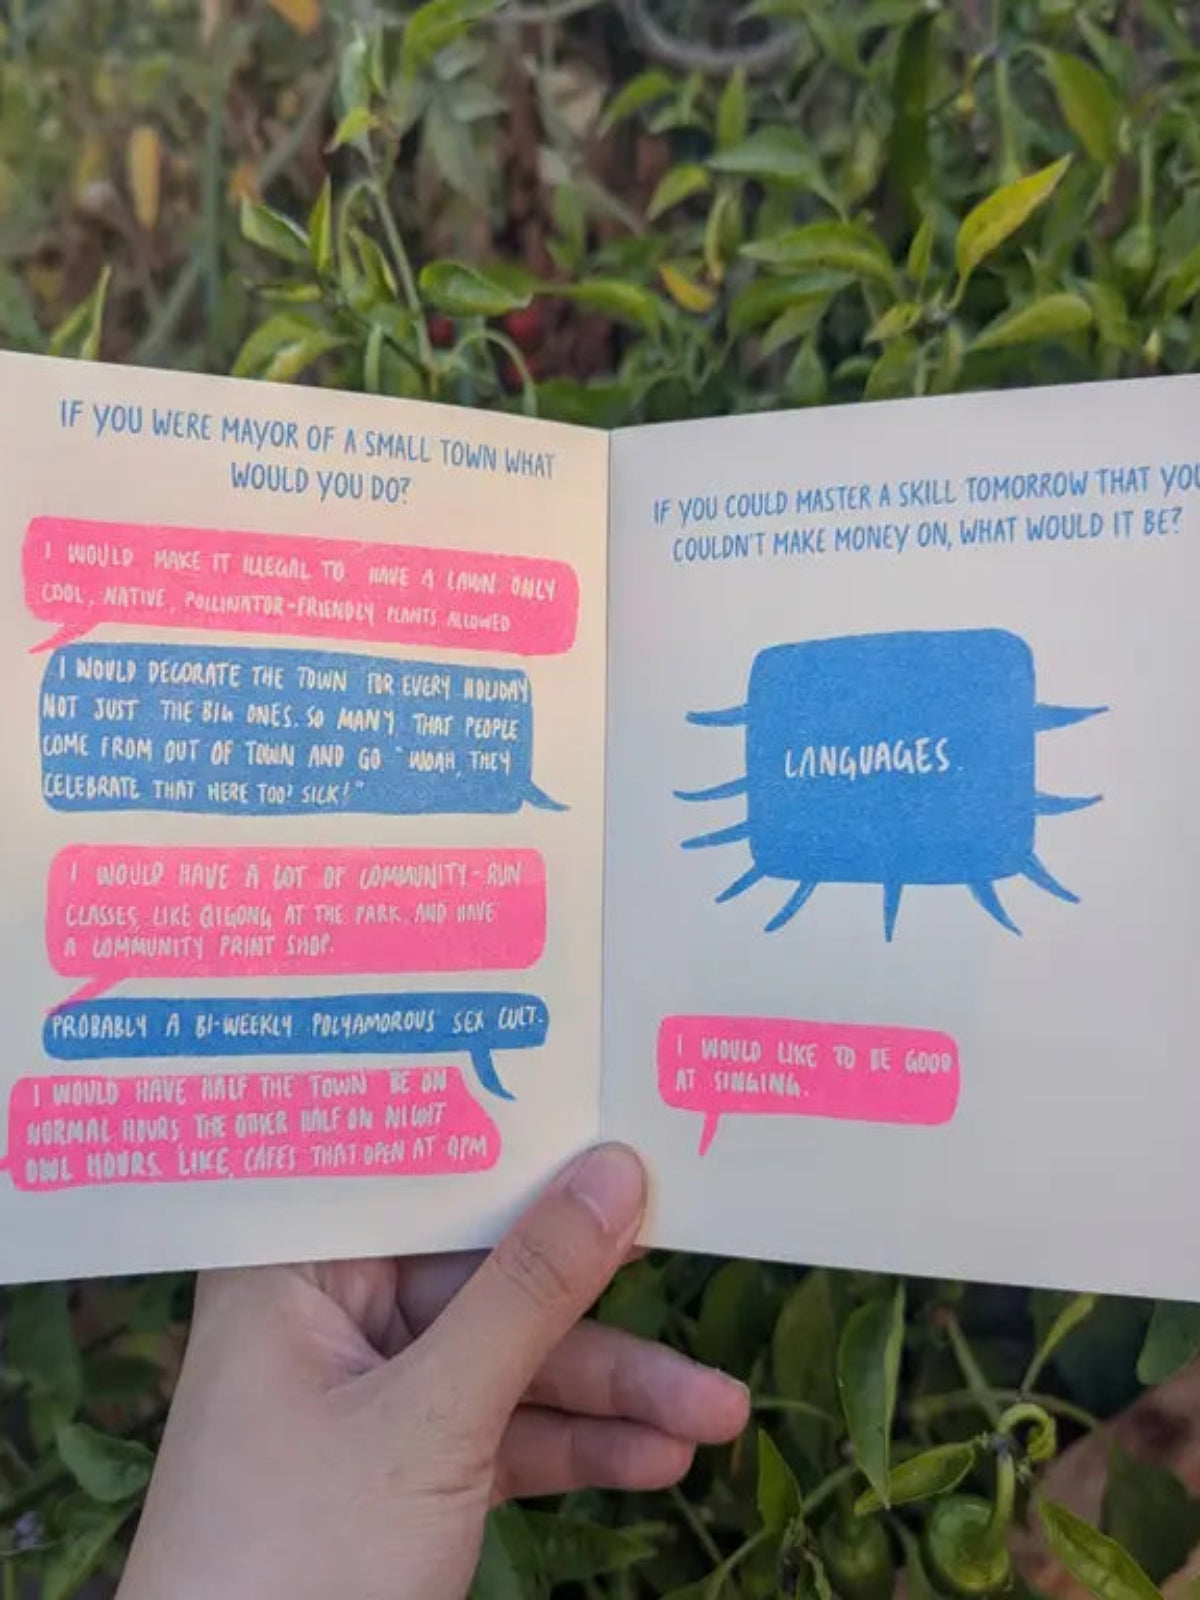 IF YOU WERE MAYOR OF A SMALL TOWN WHAT
WOULD YOU DO?
I WOULD MAKE IT ILLEGAL TO HAVE A LAWN. ONLY
COOL, NATIVE, POLLINATOR-FRIENDLY PLANTS ALLOWED
I WOULD DECORATE THE TOWN FOR EVERY HOLIDAY
NOT JUST THE BIG ONES. SO MANY THAT PEOPLE
COME FROM OUT OF TOWN AND GO "WOAH, THEY
CELEBRATE THAT HERE TOO? SICK!"
I WOULD HAVE A LOT OF COMMUNITY-RUN
CLASSES, LIKE QIGONG AT THE PARK. AND HAVE
A COMMUNITY PRINT SHOP.
PROBABLY A BI-WEEKLY POLYAMOROUS SEX CULT.
I WOULD HAVE HALF THE TOWN BE ON
NORMAL HOURS THE OTHER HALF ON NIGHT
OWL HOURS. LIKE, CAFES THAT OPEN AT 9PM
IF YOU COULD MASTER A SKILL TOMORROW THAT YOU
COULDN'T MAKE MONEY ON, WHAT WOULD IT BE?
LANGUAGES.
I WOULD LIKE TO BE GOOD
AT SINGING.